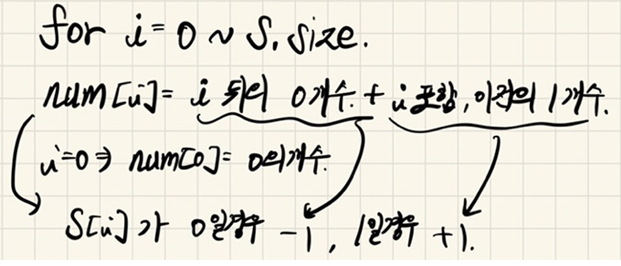 for i = 0 ~ S.size.
num[i] = i 뒤의 0개수. + i 포함, 이전의 1개수.
i=0 ⇒ num[0] = 0의개수.
S[i]가 0일경우 -1, 1일경우 +1.